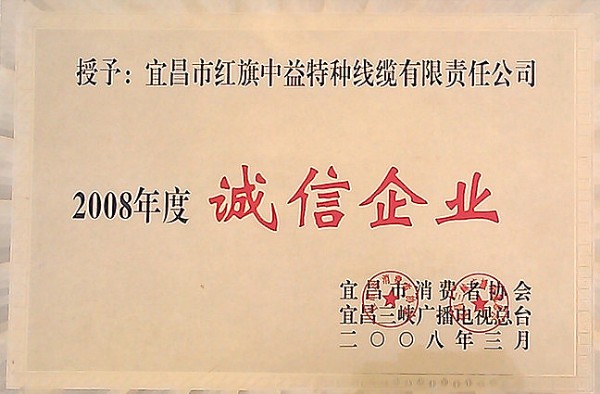 授予：宜昌市红旗中益特种线缆有限责任公司
2008年度 诚信企业
宜昌市消费者协会
宜昌三峡广播电视总台
二〇〇八年三月